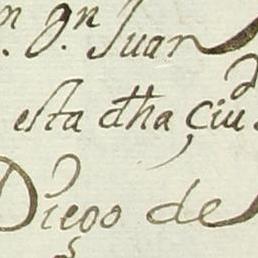 n. Jn Juan
esta dha çiud.
Diego de